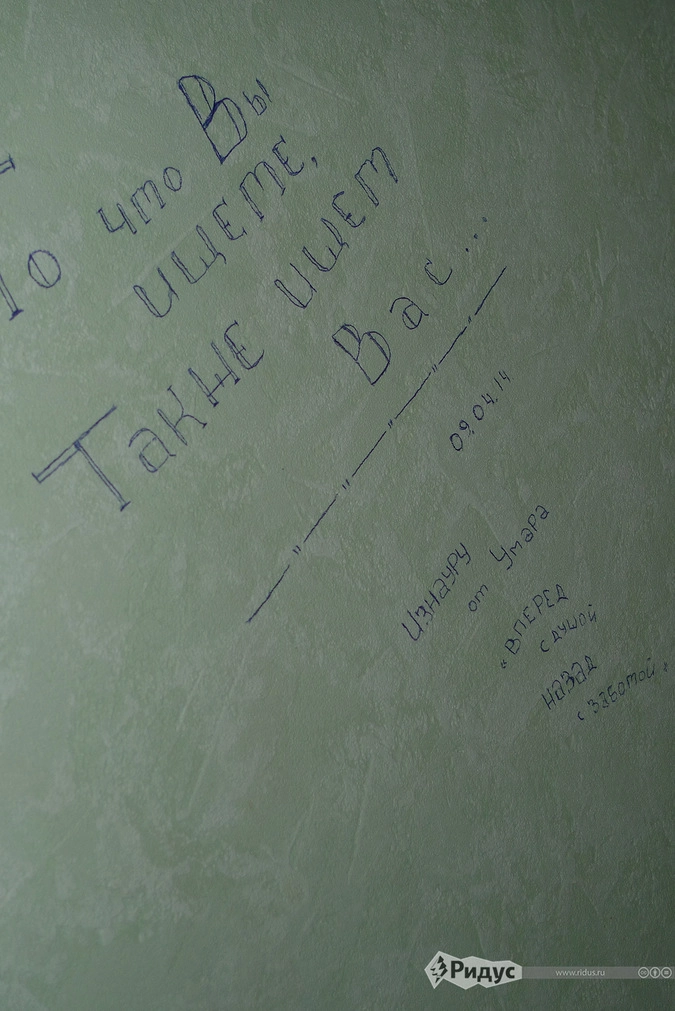 То что Вы
ищете,
также ищет
Вас...
09.04.14
Изнауру
от Умара
"Вперед
с душой
назад
с заботой"
Ридус
www.ridus.ru